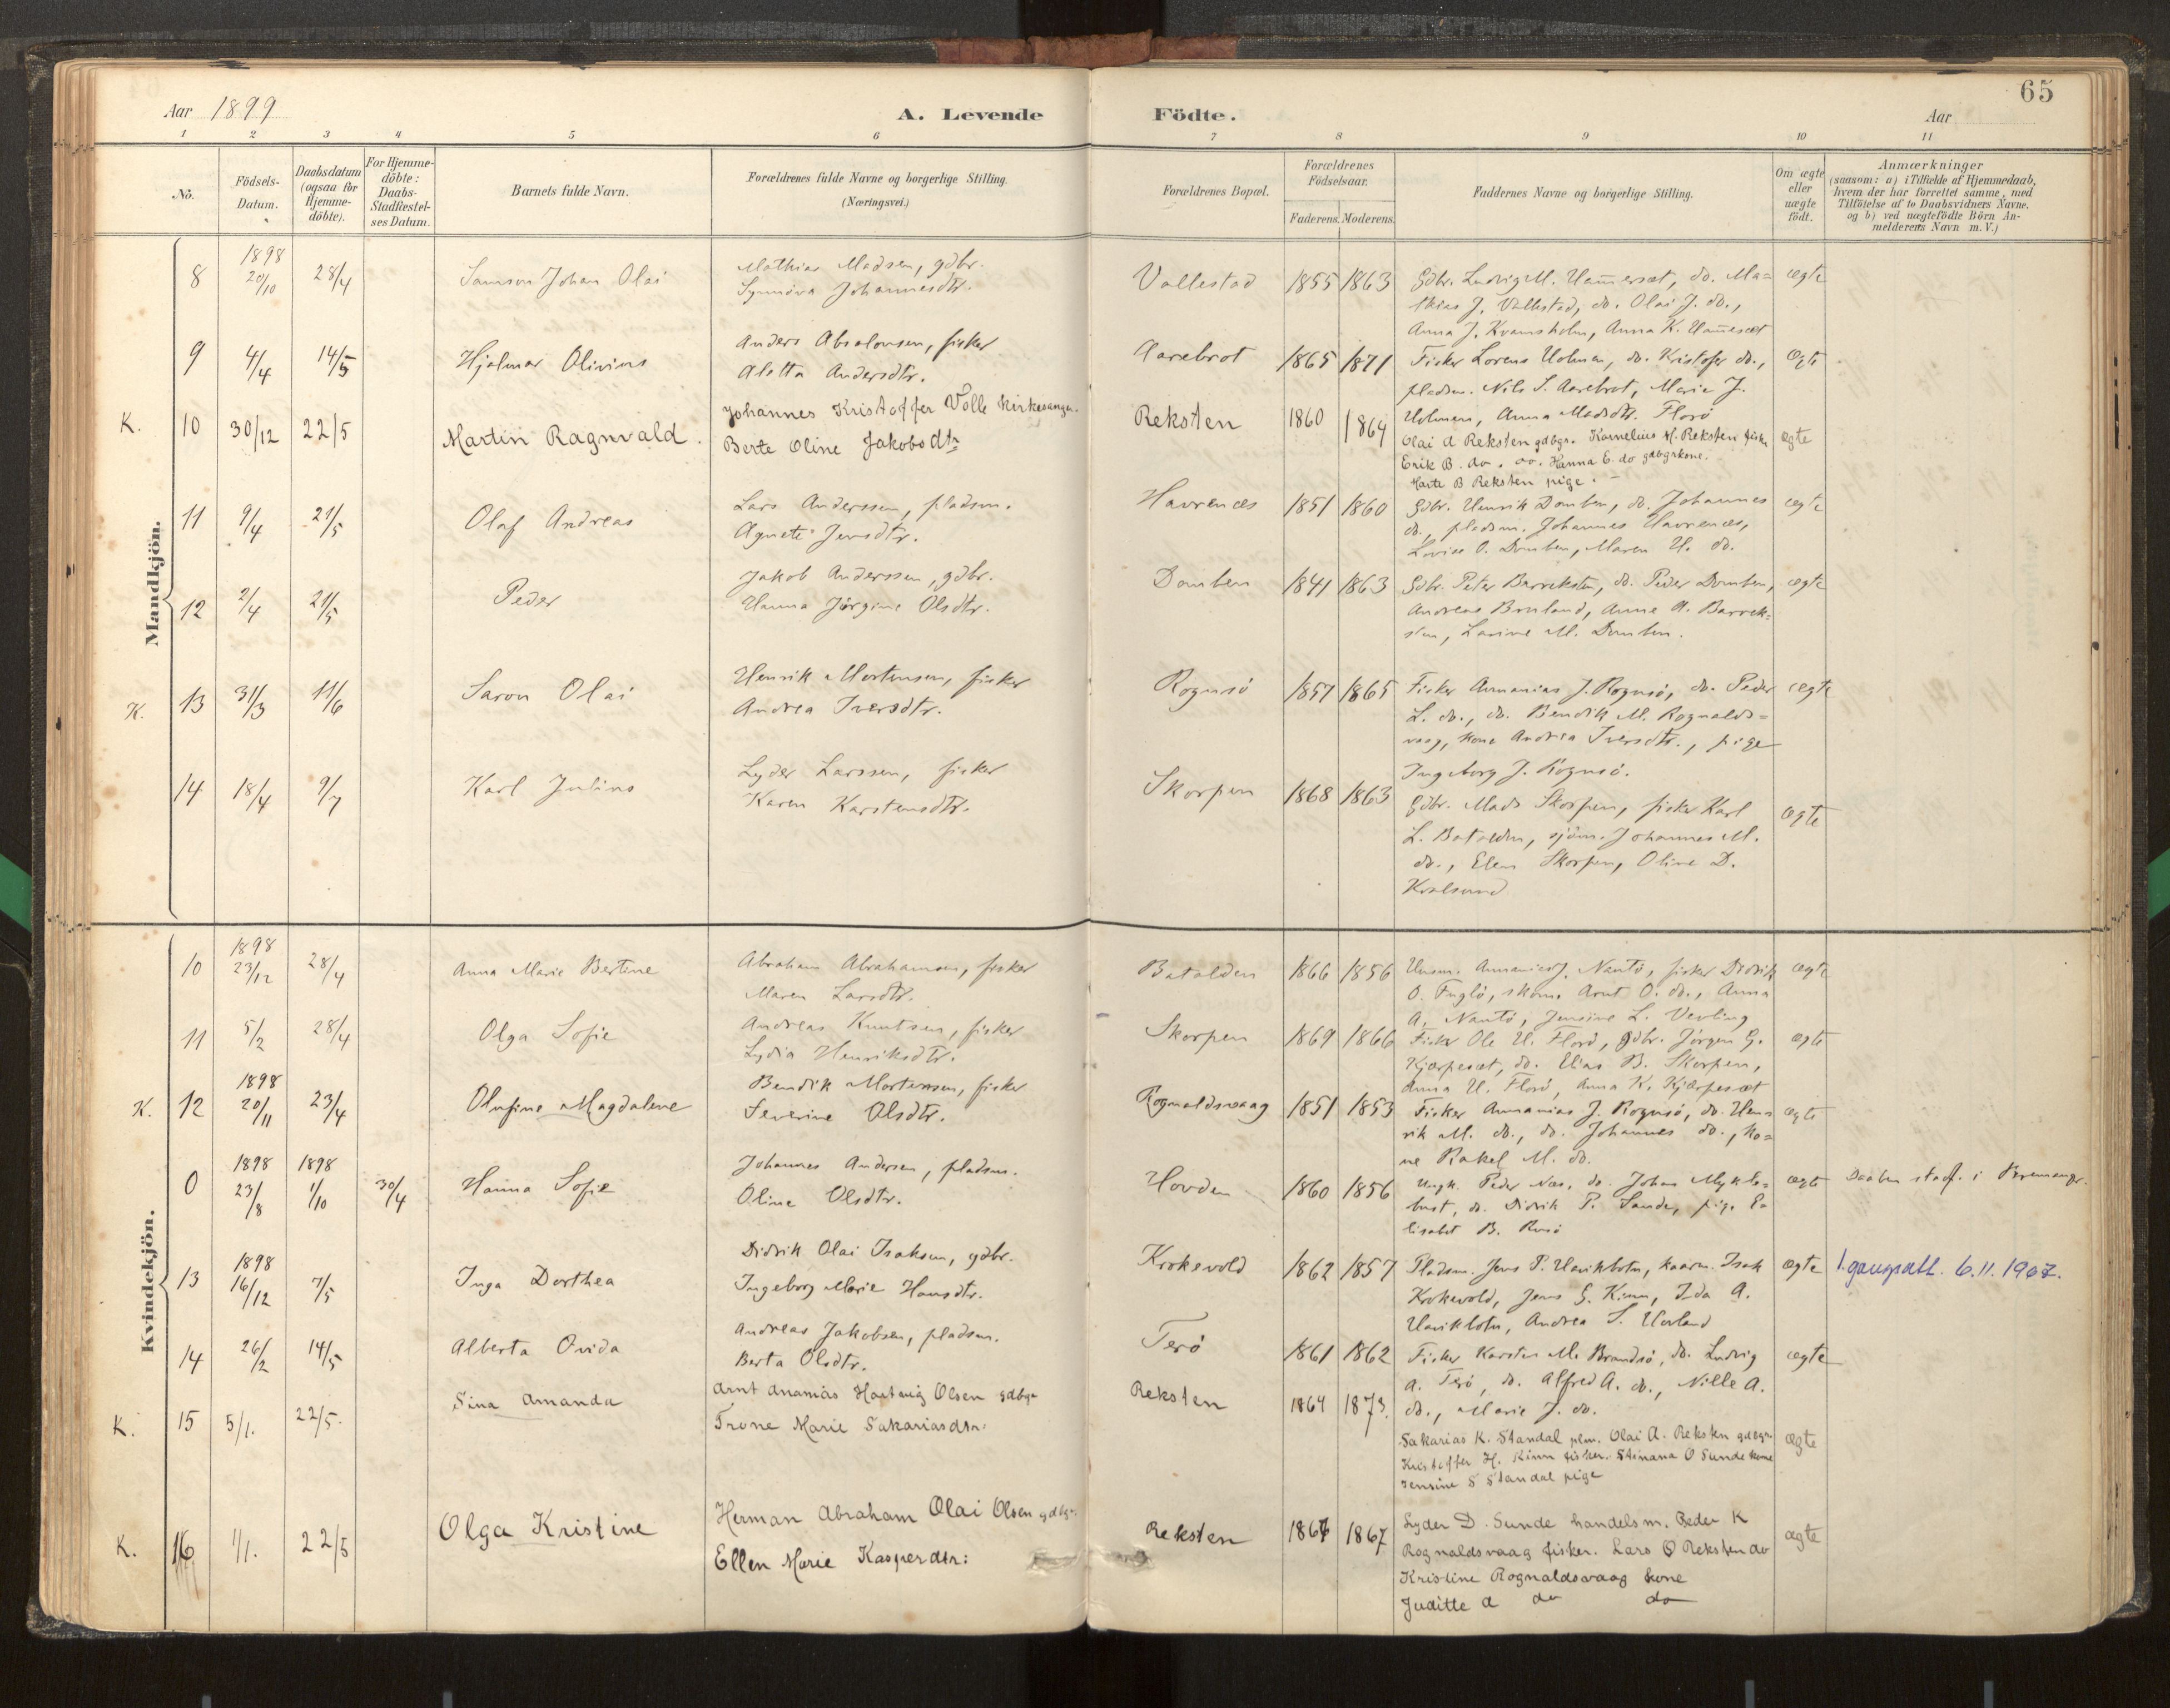 65
Aar 1899 A. Levende Födte. Aar
1 2 3 4 5 6 7 8 9 10 11
No.
Födsels-
Datum.
Daabsdatum
(ogsaa for
Hjemme-
döbte).
For Hjemme-
döbte:
Daabs-
Stadfæstel-
ses Datum.
Barnets fulde Navn.
Forældrenes fulde Navne og borgerlige Stilling.
(Næringsvei.)
Forældrenes Bopæl.
Forældrenes
Födselsaar.
Faderens. Moderens.
Faddernes Navne og borgerlige Stilling.
Om ægte
eller
uægte
födt.
Anmærkninger
(saasom: a) i Tilfælde af Hjemmedaab,
hvem der har forrettet samme, med
Tilföielse af to Daabsvidners Navne,
og b) ved uægtefödte Börn An-
melderens Navn m. V.)
Mandkjön.
8 1898 20/10 28/4 Samson Johan Olai
Mathias Madsen, gdbr.
Synnöva Johannesdtr.
Vallestad 1855 1863
Gdbr. Ludvig M. Hammersæt, do. Ma=
thias J. Vallestad, do. Olai J. do.,
Anna J. Kvamsholm, Anna K. Hammersæt
ægte
9 4/4 14/5 Hjalmar Olivius
Anders Absalonsen, fisker
Aletta Andersdtr.
Aarebrot 1865 1871
Fisker Lorens Holmen, do. Kristofer do.,
pladsm. Nils S. Aarebrot, Marie J.
Holmen, Anna Madsdtr. Florö
ægte
K. 10 30/12 22/5 Martin Ragnvald.
Johannes Kristoffer Volle Kirkesanger.
Berte Oline Jakobsdtr
Reksten 1860 1864
Olai A Reksten gdbgr. Kornelius H. Reksten fisker
Erik B. do. do. Hanna E. do gdbgrkone.
Marte B Reksten pige.
ægte
11 9/4 21/5 Olaf Andreas
Lars Anderssen, pladsm.
Agnete Jensdtr.
Havrenæs 1851 1860
Gdbr. Henrik Domben, do. Johannes
do., pladsm. Johannes Havrenæs,
Lovise O. Domben, Maren H. do.
ægte
12 2/4 21/5 Peder
Jakob Anderssen, gdbr.
Hanna Jörgine Olsdtr.
Domben 1841 1863
Gdbr. Peter Barreksten, do. Peder Domben,
Andreas Bruland, Anne A. Barrek=
sten, Lavine M. Domben.
ægte
K. 13 31/3 11/6 Saron Olai
Henrik Mortensen, fisker
Andrea Iversdtr.
Rognsö 1857 1865
Fisker Annanias J. Rognsö, do. Peder
L. do., do. Bendik M. Rognalds=
vaag, kone Andrea Iversdtr., pige
Ingeborg J. Rognsö.
ægte
14 18/4 9/7 Karl Julius
Lyder Larssen, fisker
Karen Karstensdtr.
Skorpen 1868 1863
Gdbr. Mads Skorpen, fisker Karl
L. Batalden, sjöm. Johannes M.
do., Elen Skorpen, Oline D.
Kvalsund
ægte
Kvindekjön.
10 1898 23/12 28/4 Anna Marie Bertine
Abraham Abrahamsen, fisker
Maren Larsdtr.
Batalden 1866 1856
Ungm. Annanias J. Nautö, fisker Didrik
O. Fuglö, skom. Arnt O. do., Anna
A. Nautö, Jensine L. Vevling
ægte
11 5/2 28/4 Olga Sofie
Andreas Knutsen, fisker
Lydia Henriksdtr.
Skorpen 1869 1866
Fisker Ole H. Florö, gdbr. Jörgen G.
Kjærpesæt, do. Elias B. Skorpen,
Anna H. Florö, Anna K. Kjærpesæt
ægte
K. 12 1898 20/11 23/4 Olufine Magdalene
Bendik Mortensen, fisker
Severine Olsdtr.
Rognaldsvaag 1851 1853
Fisker Annanias J. Rognsö, do. Hen=
rik M. do., do. Johannes do., ko=
ne Rakel M. do.
ægte
0 1898 23/8 1898 1/10 30/4 Hanna Sofie
Johannes Andersen, pladsm.
Oline Olsdtr.
Hovden 1860 1856
Ungk. Peder Næs, do. Johan Mykle=
bust, do. Didrik P. Sande, pige E=
lisabet B.
ægte Daaben stadf. i Bremanger.
13 1898 16/12 7/5 Inga Dorthea
Didrik Olai Isaksen, gdbr.
Ingeborg Marie Hansdtr.
Krokevold 1862 1857
Pladsm. Jens P. Havikbotn, kaarm. Isak
Krokevold, Jens G. Kinn, Ida A.
Havikbotn, Andrea S. Hovland
ægte 1. gangs att. 6.11.1967.
14 26/2 14/5 Alberta Ovida
Andreas Jakobsen, pladsm.
Berta Olsdtr.
Terö 1861 1862
Fisker Karsten M. Brandsö, do. Ludvig
A. Terö, do. Alfred A. do., Nille A.
do., Marie J. do.
ægte
K. 15 5/1. 22/5. Sina Amanda
Arnt Ananias Hartvig Olsen gdbgr
Trone Marie Sakariasdtr.
Reksten 1864 1873.
Sakarias K. Standal plm. Olai A. Reksten gdbgr.
Kristoffer H. Kinn fisker. Stinana O Sunde kone
Jensine S Standal pige
ægte
K. 16 1/1. 22/5 Olga Kristine
Herman Abraham Olai Olsen gdbgr.
Ellen Marie Kasperdtr:
Reksten 1867 1867
Lyder D. Sunde handelsm. Peder K
Rognaldsvaag fisker. Lars O Reksten do
Kristine Rognaldsvaag kone
Juditte A do do
ægte